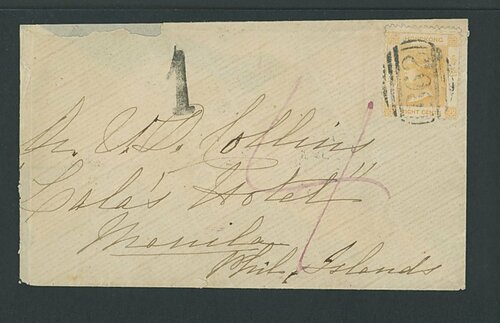 HONG KONG
B62
EIGHT CENTS
1
4
Mr. J. D. Collins
"Lala's Hotel"
Manila
Phil. Islands